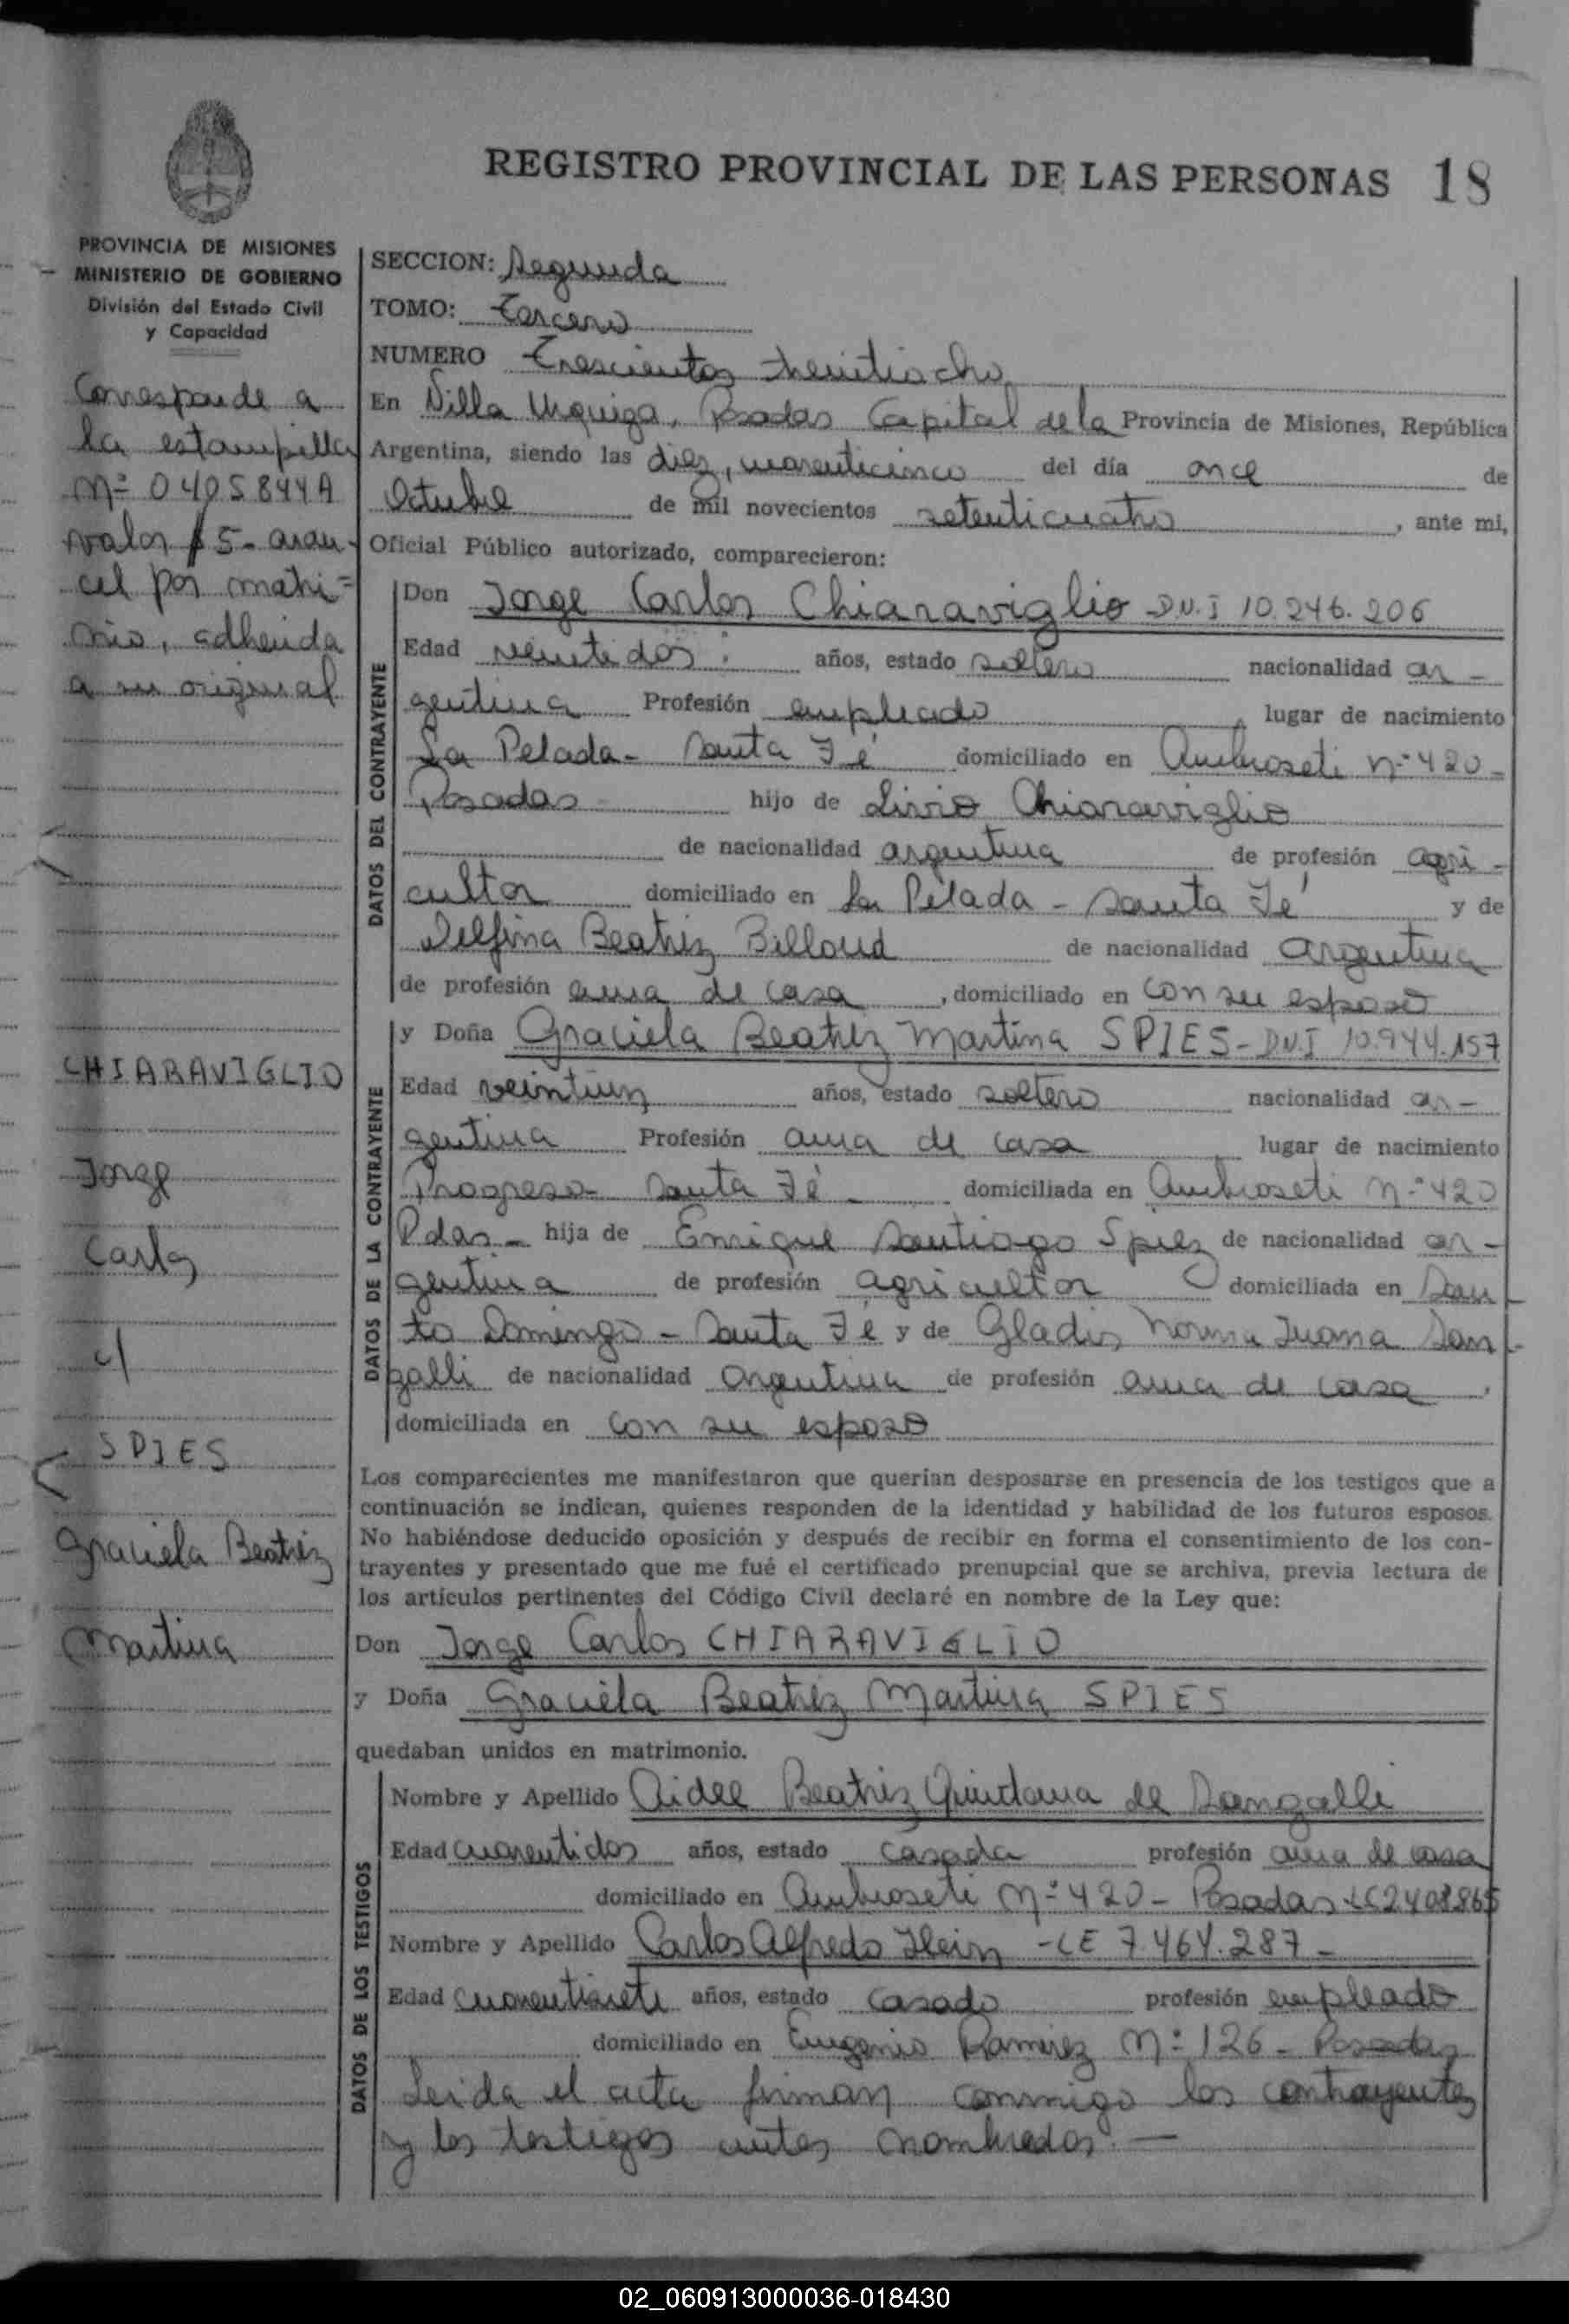 REGISTRO PROVINCIAL DE LAS PERSONAS 18
PROVINCIA DE MISIONES
MINISTERIO DE GOBIERNO
División del Estado Civil
y Capacidad
Corresponde a
la estampilla
Nº 0405844A
valor $5- aran-
cel por matri=
nio, adherida
a su original
CHIARAVIGLIO
Jorge
Carlos
c/
SPIES
Graciela Beatriz
Martina
SECCION: Segunda
TOMO: tercero
NUMERO Trescientos treintiocho
En Villa Urquiza, Posadas Capital de la Provincia de Misiones, República
Argentina, siendo las diez, cuarenticinco del día once de
Octubre de mil novecientos setenticuatro, ante mi,
Oficial Público autorizado, comparecieron:
DATOS DEL CONTRAYENTE
Don Jorge Carlos Chiaraviglio D.N.I 10.246.206
Edad veintidos años, estado soltero nacionalidad ar-
gentina Profesión empleado, lugar de nacimiento
La Pelada- Santa Fé domiciliado en Ambroseti nº 420-
Posadas hijo de Livio Chiaraviglio
de nacionalidad argentina de profesión agri-
cultor domiciliado en La Pelada - Santa Fé y de
Delfina Beatriz Billoud de nacionalidad argentina
de profesión ama de casa, domiciliado en con su esposo
DATOS DE LA CONTRAYENTE
y Doña Graciela Beatriz Martina SPIES- D.N.I 10.944.157
Edad veintiun años, estado soltero nacionalidad ar-
gentina Profesión ama de casa lugar de nacimiento
Progreso Santa Fé- domiciliada en Ambroseti nº 420
Pdas- hija de Enrique Santiago Spiez de nacionalidad ar-
gentina de profesión agricultor domiciliada en San-
to Domingo - Santa Fé y de Gladis Norma Juana San-
galli de nacionalidad argentina de profesión ama de casa,
domiciliada en con su esposo
Los comparecientes me manifestaron que querían desposarse en presencia de los testigos que a
continuación se indican, quienes responden de la identidad y habilidad de los futuros esposos.
No habiéndose deducido oposición y después de recibir en forma el consentimiento de los con-
trayentes y presentado que me fué el certificado prenupcial que se archiva, previa lectura de
los artículos pertinentes del Código Civil declaré en nombre de la Ley que:
Don Jorge Carlos CHIARAVIGLIO
y Doña Graciela Beatriz Martina SPIES
quedaban unidos en matrimonio.
DATOS DE LOS TESTIGOS
Nombre y Apellido Aidee Beatriz Quintana de Sangalli
Edad cuarentidos años, estado casada profesión ama de casa
domiciliado en Ambroseti Nº 420- Posadas LC2408865
Nombre y Apellido Carlos Alfredo -LE 7.464.287-
Edad cuarentisiete años, estado casado profesión empleado
domiciliado en Eugenio Ramirez Nº 126- Posadas
Leida el acta firman conmigo los contrayentes
y los testigos antes nombrados.—
02_060913000036-018430